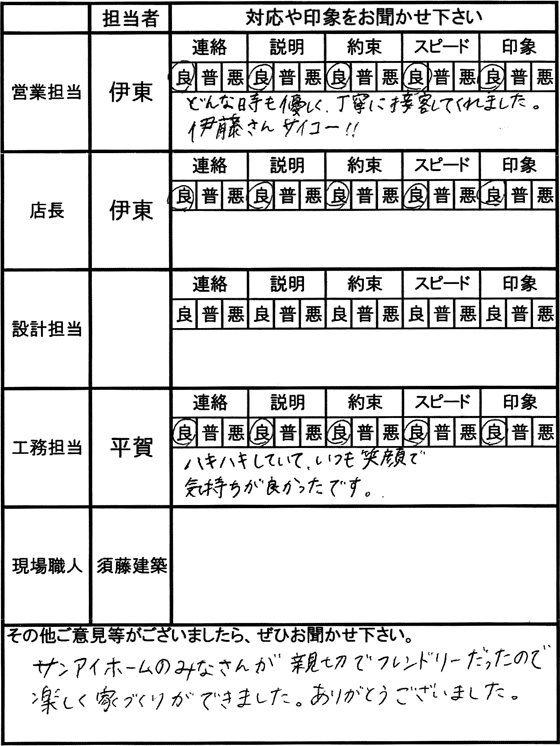 担当者 対応や印象をお聞かせ下さい
連絡 説明 約束 スピード 印象
営業担当 伊東 良 普 悪 良 普 悪 良 普 悪 良 普 悪 良 普 悪
どんな時も優しく、丁寧に接客してくれました。
伊藤さんサイコー!!
連絡 説明 約束 スピード 印象
店長 伊東 良 普 悪 良 普 悪 良 普 悪 良 普 悪 良 普 悪
連絡 説明 約束 スピード 印象
設計担当 良 普 悪 良 普 悪 良 普 悪 良 普 悪 良 普 悪
連絡 説明 約束 スピード 印象
工務担当 平賀 良 普 悪 良 普 悪 良 普 悪 良 普 悪 良 普 悪
ハキハキしていて、いつも笑顔で
気持ちが良かったです。
現場職人 須藤建築
その他ご意見等がございましたら、ぜひお聞かせ下さい。
サンアイホームのみなさんが親切でフレンドリーだったので
楽しく家づくりができました。ありがとうございました。